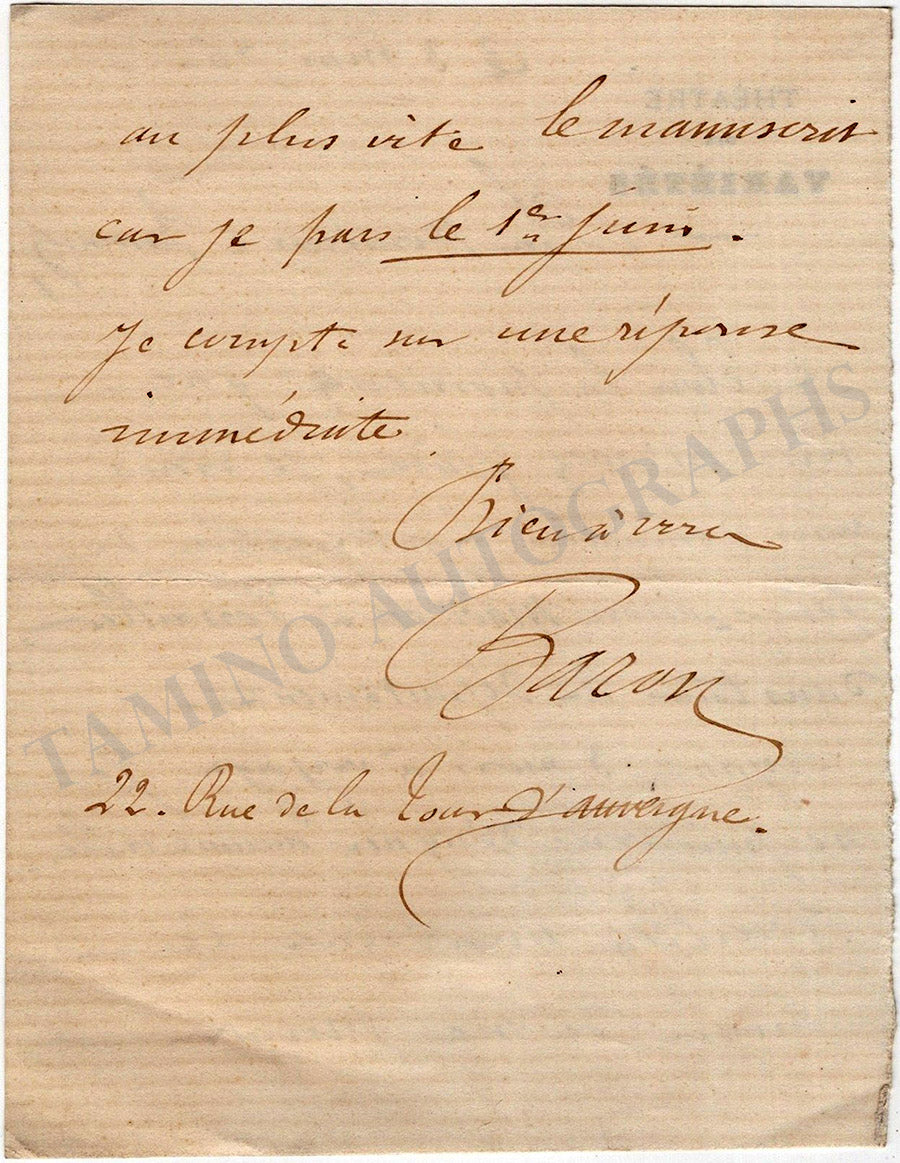 au plus vite le manuscrit
car je pars le 1er Juin.
Je compte sur une réponse
immédiate
Bien à vous
Baron
22. Rue de la Tour d'auvergne.
THÉATRE
VARIÉTÉS
TAMINO AUTOGRAPHS